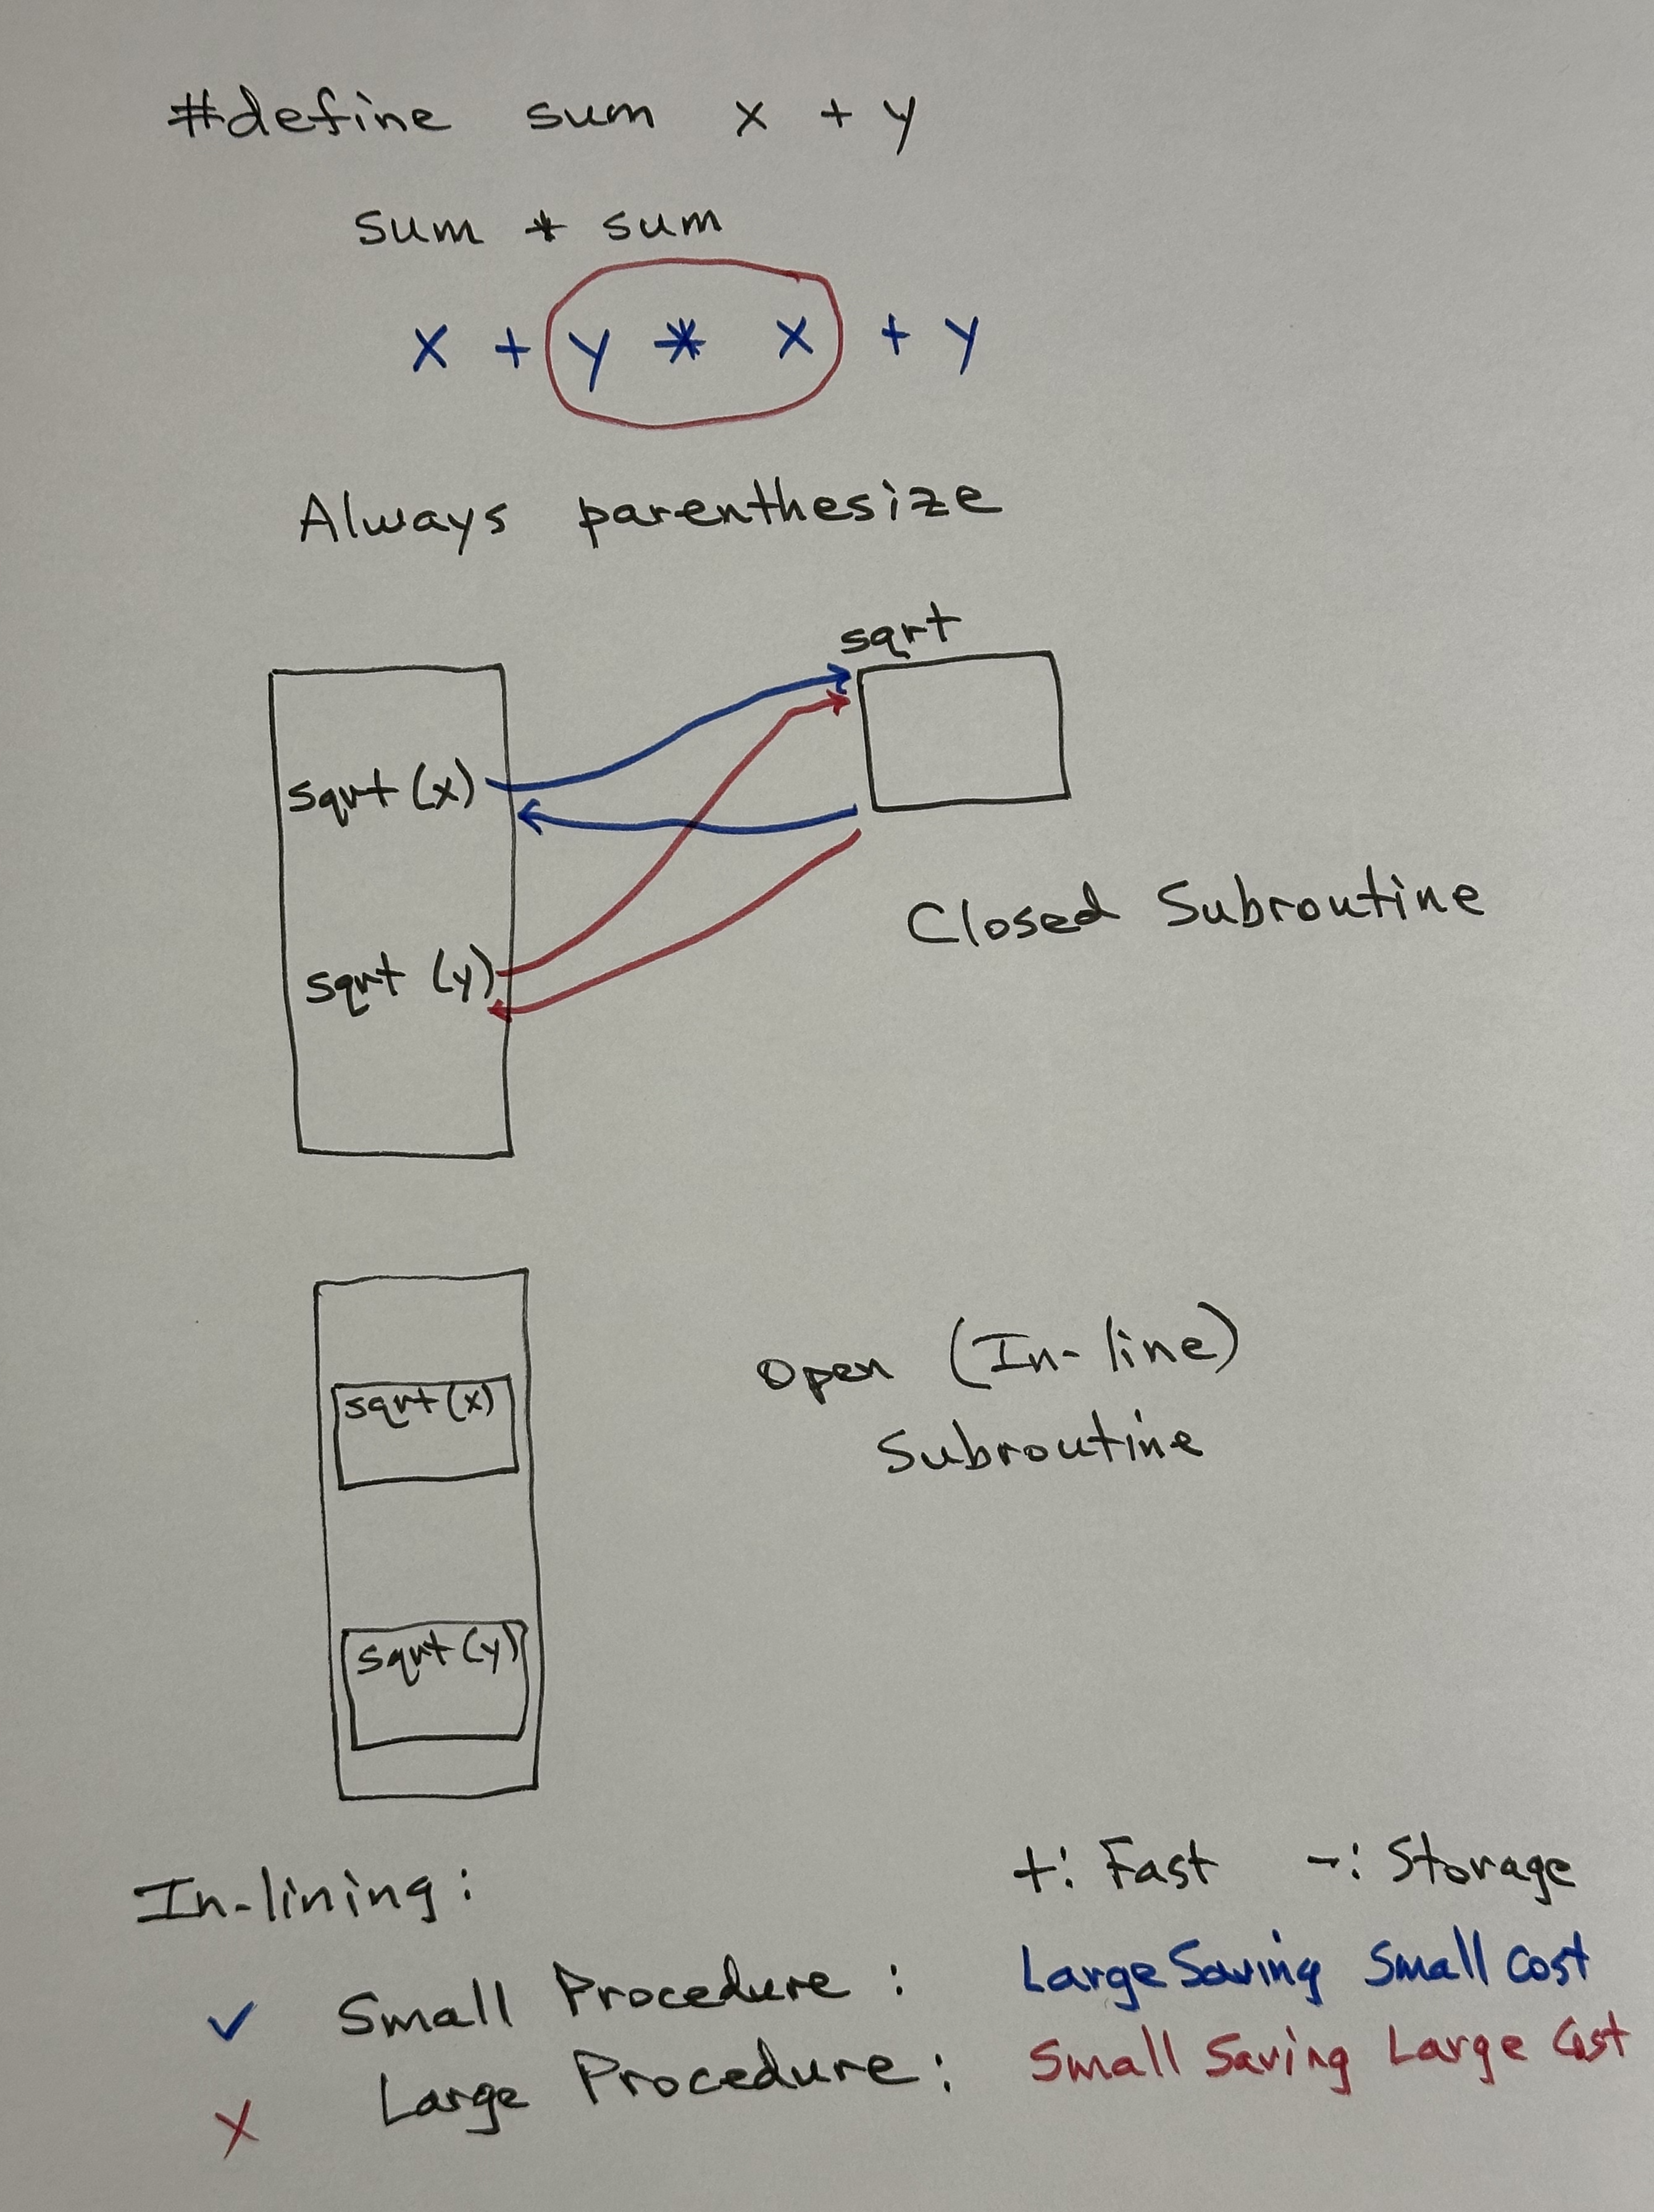 #define sum x + y
sum * sum
x + y * x + y
Always parenthesize
sqrt
sqrt (x)
Closed Subroutine
sqrt (y)
Open (In-line)
sqrt (x)
Subroutine
sqrt (y)
In-lining: +: Fast -: Storage
✓ Small Procedure: Large Saving Small Cost
X Large Procedure: Small Saving Large Cost